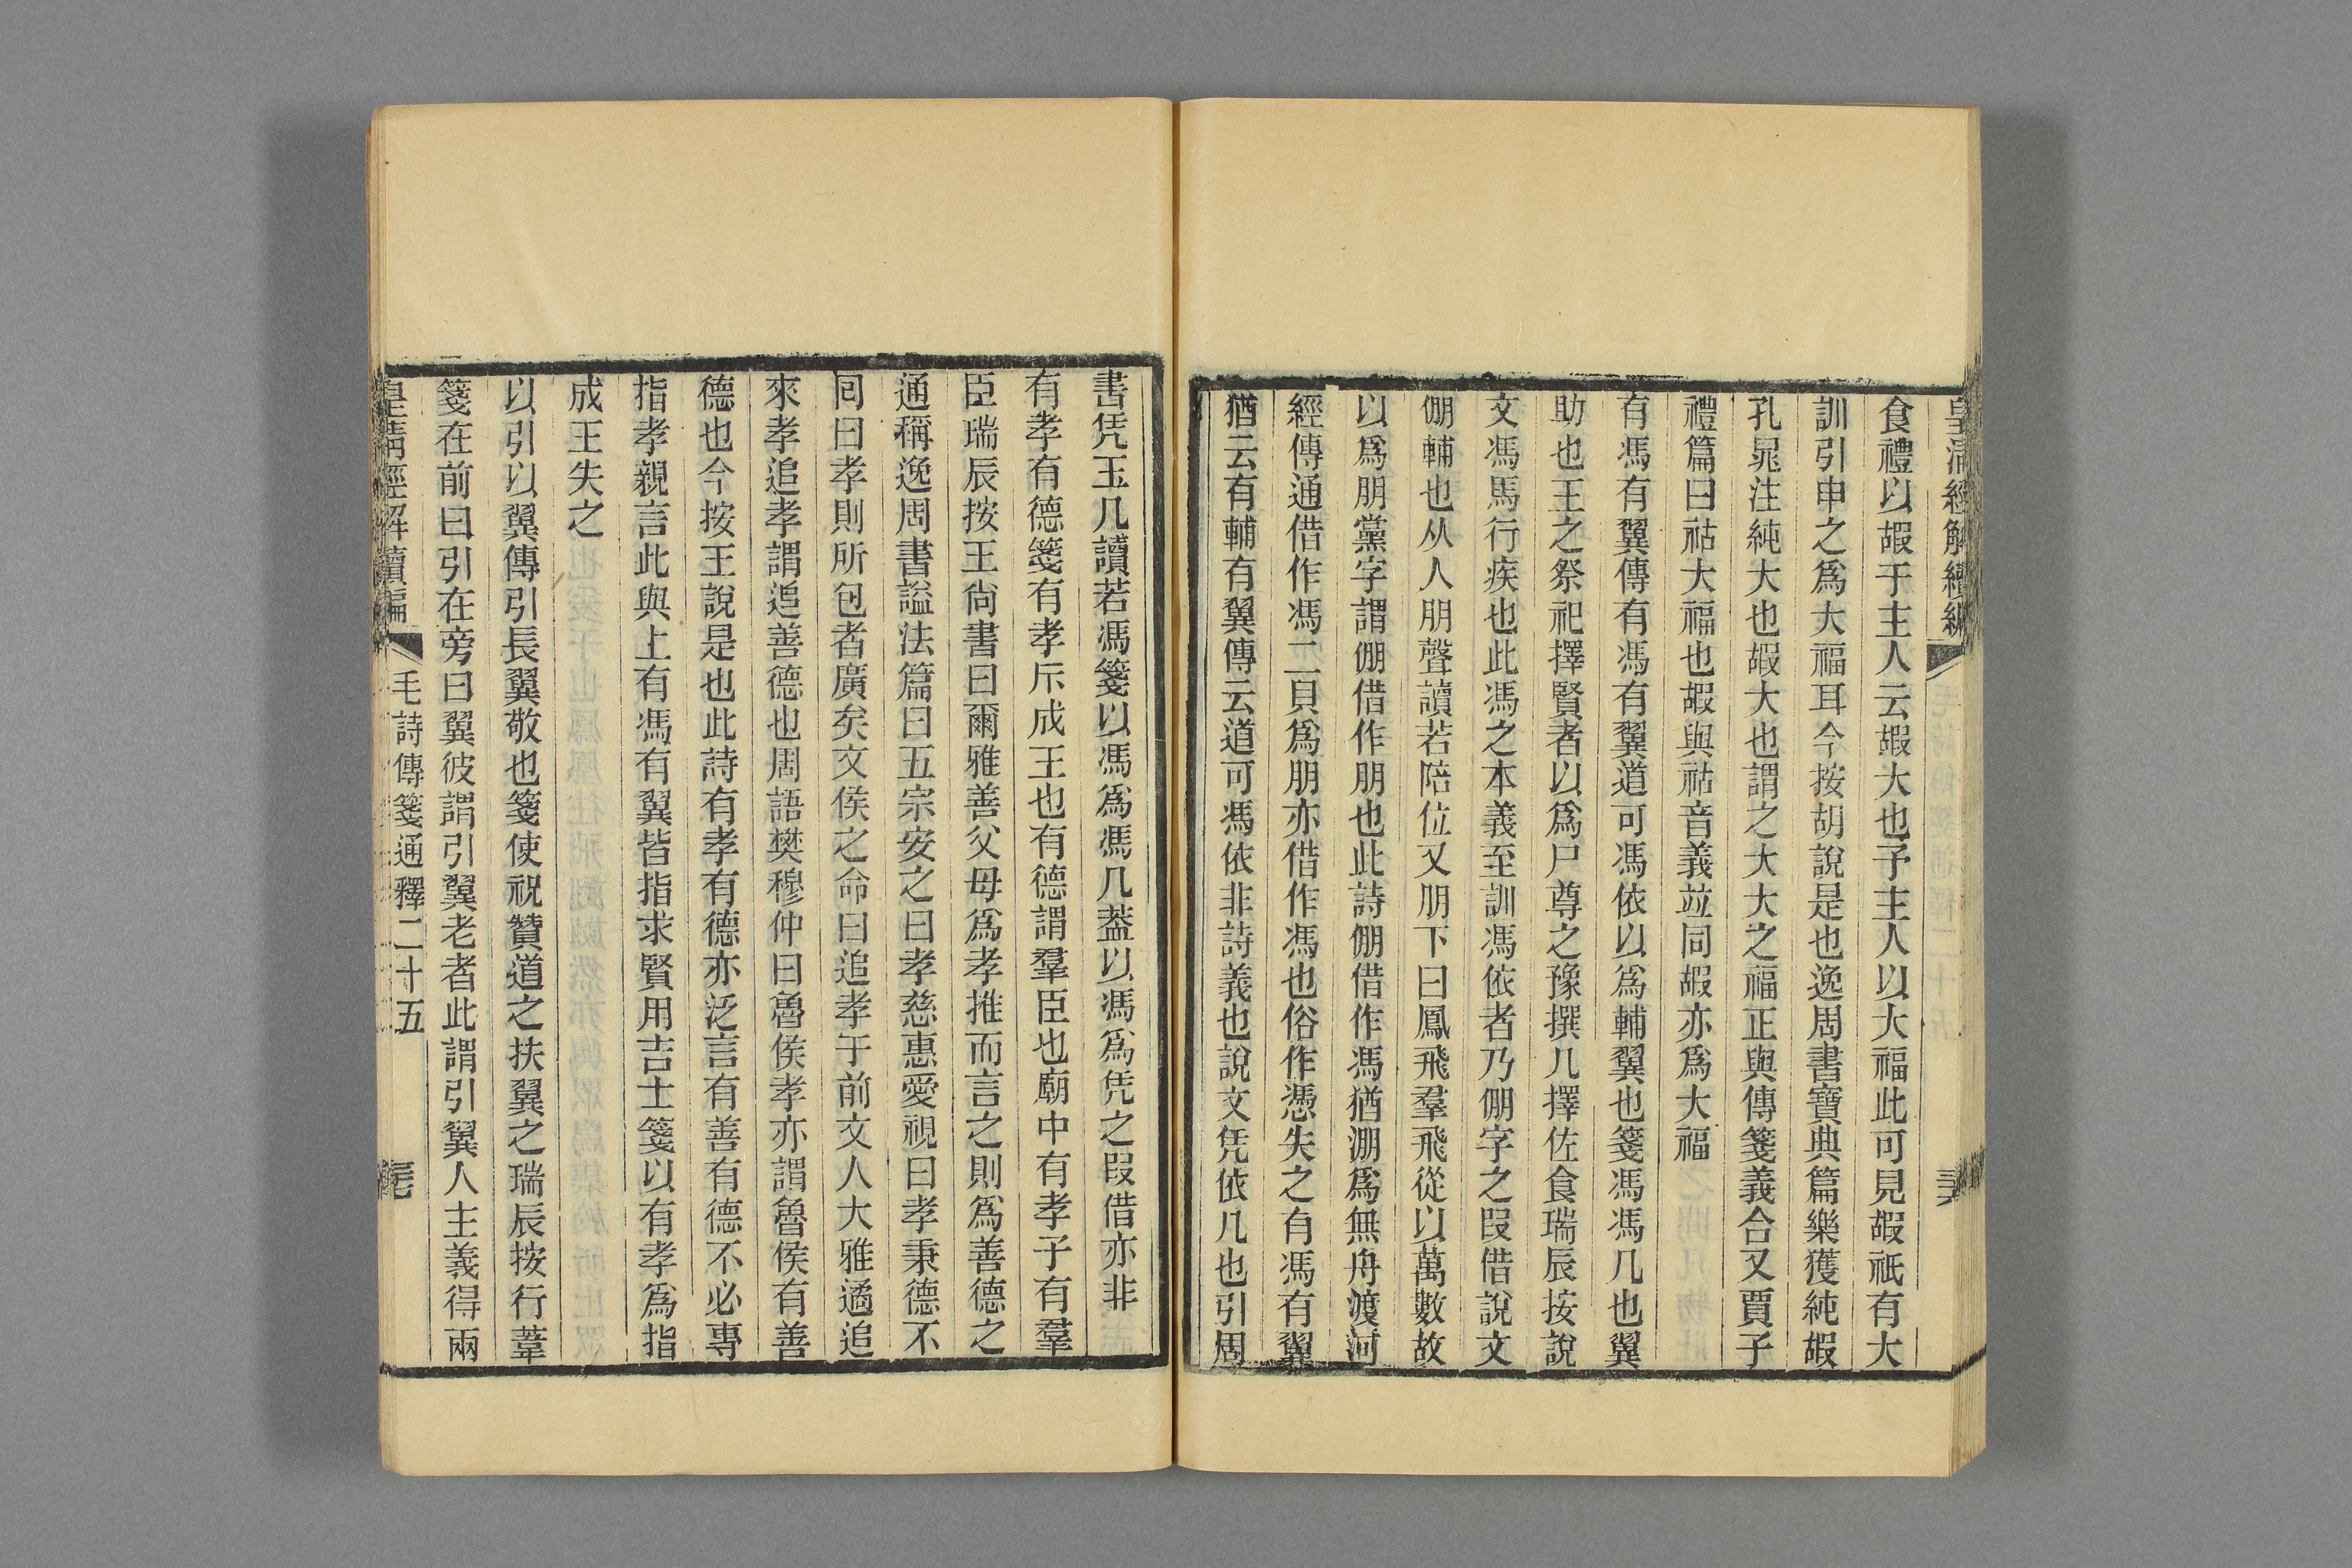 皇清經解續編
食禮以嘏于主人云嘏大也予主人以大福此可見嘏祇有大
訓引申之爲大福耳今按胡說是也逸周書寶典篇樂獲純嘏
孔晁注純大也嘏大也謂之大大之福正與傳箋義合又賈子
禮篇曰祜大福也嘏與祜音義竝同嘏亦爲大福
有馮有翼傳有馮有翼道可馮依以爲輔翼也箋馮馮几也翼
助也王之祭祀擇賢者以爲尸尊之豫撰几擇佐食瑞辰按說
文馮馬行疾也此馮之本義至訓馮依者乃倗字之叚借說文
倗輔也从人朋聲讀若陪位又朋下曰鳳飛羣飛從以萬數故
以爲朋黨字謂倗借作朋也此詩倗借作馮猶淜爲無舟渡河
經傳通借作馮二貝爲朋亦借作馮也俗作憑失之有馮有翼
猶云有輔有翼傳云道可馮依非詩義也說文凭依几也引周
書凭玉几讀若馮箋以馮爲馮几葢以馮爲凭之叚借亦非
有孝有德箋有孝斥成王也有德謂羣臣也廟中有孝子有羣
臣瑞辰按王尙書曰爾雅善父母爲孝推而言之則爲善德之
通稱逸周書謚法篇曰五宗安之曰孝慈惠愛視曰孝秉德不
回曰孝則所包者廣矣文侯之命曰追孝于前文人大雅遹追
來孝孝追孝謂追善德也周語樊穆仲曰魯侯孝亦謂魯侯有善
德也今按王說是也此詩有孝有德亦泛言有善有德不必專
指孝親言此與上有馮有翼皆指求賢用吉士箋以有孝爲指
成王失之
以引以翼傳引長翼敬也箋使祝贊道之扶翼之瑞辰按行葦
箋在前曰引在旁曰翼彼謂引翼老者此謂引翼人主義得兩
皇清經解續編
毛詩傳箋通釋二十五